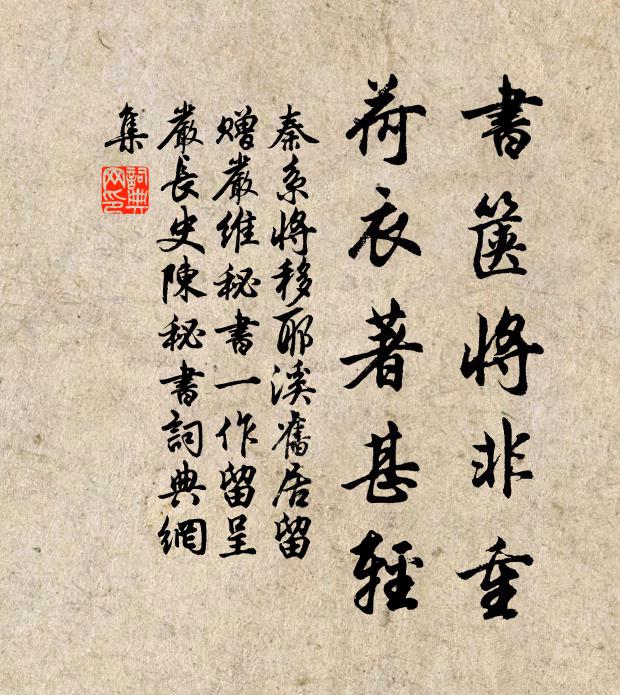 書篋將非重
荷衣著甚輕
秦系將移耶溪舊居留
贈嚴維秘書一作留呈
嚴長史陳秘書詞典網
集
詞典
网印